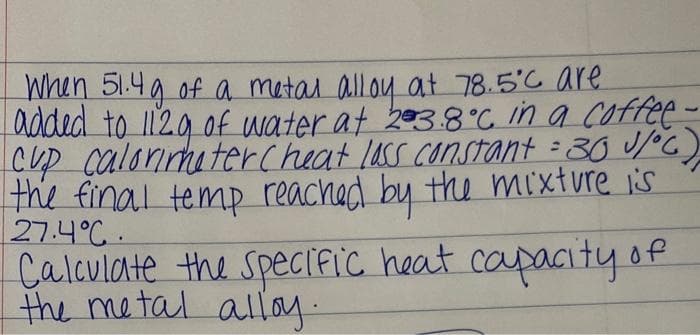 When 51.4g of a metal alloy at 78.5°C are
added to 112g of water at 23.8°C in a coffee-
cup calorimeter (heat loss constant = 30 J/°C),
the final temp reached by the mixture is
27.4°C.
Calculate the specific heat capacity of
the metal alloy.